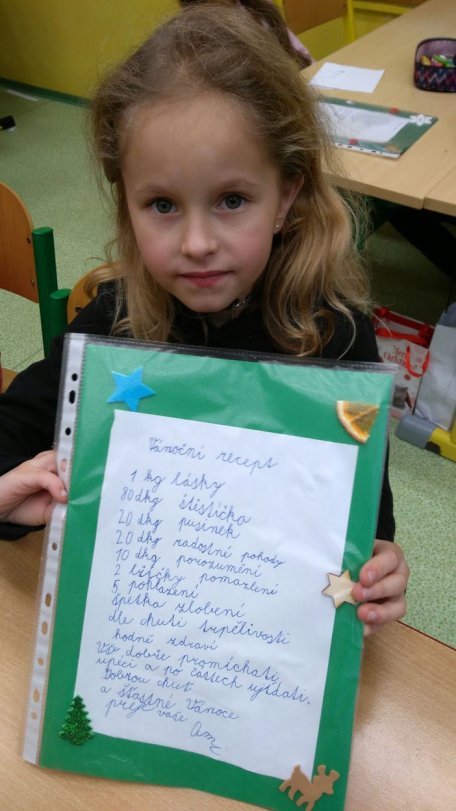 Vánoční recept
1 kg lásky
80 dkg štěstíčka
20 dkg pusinek
20 dkg radostné pohody
10 dkg porozumění
2 lžičky pomazlení
5 pohlazení
špetka zlobení
dle chuti trpělivosti
hodně zdraví
Vše dobře promíchati,
upéci a po částech ujídati.
Dobrou chuť
a šťastné Vánoce
přeje vaše